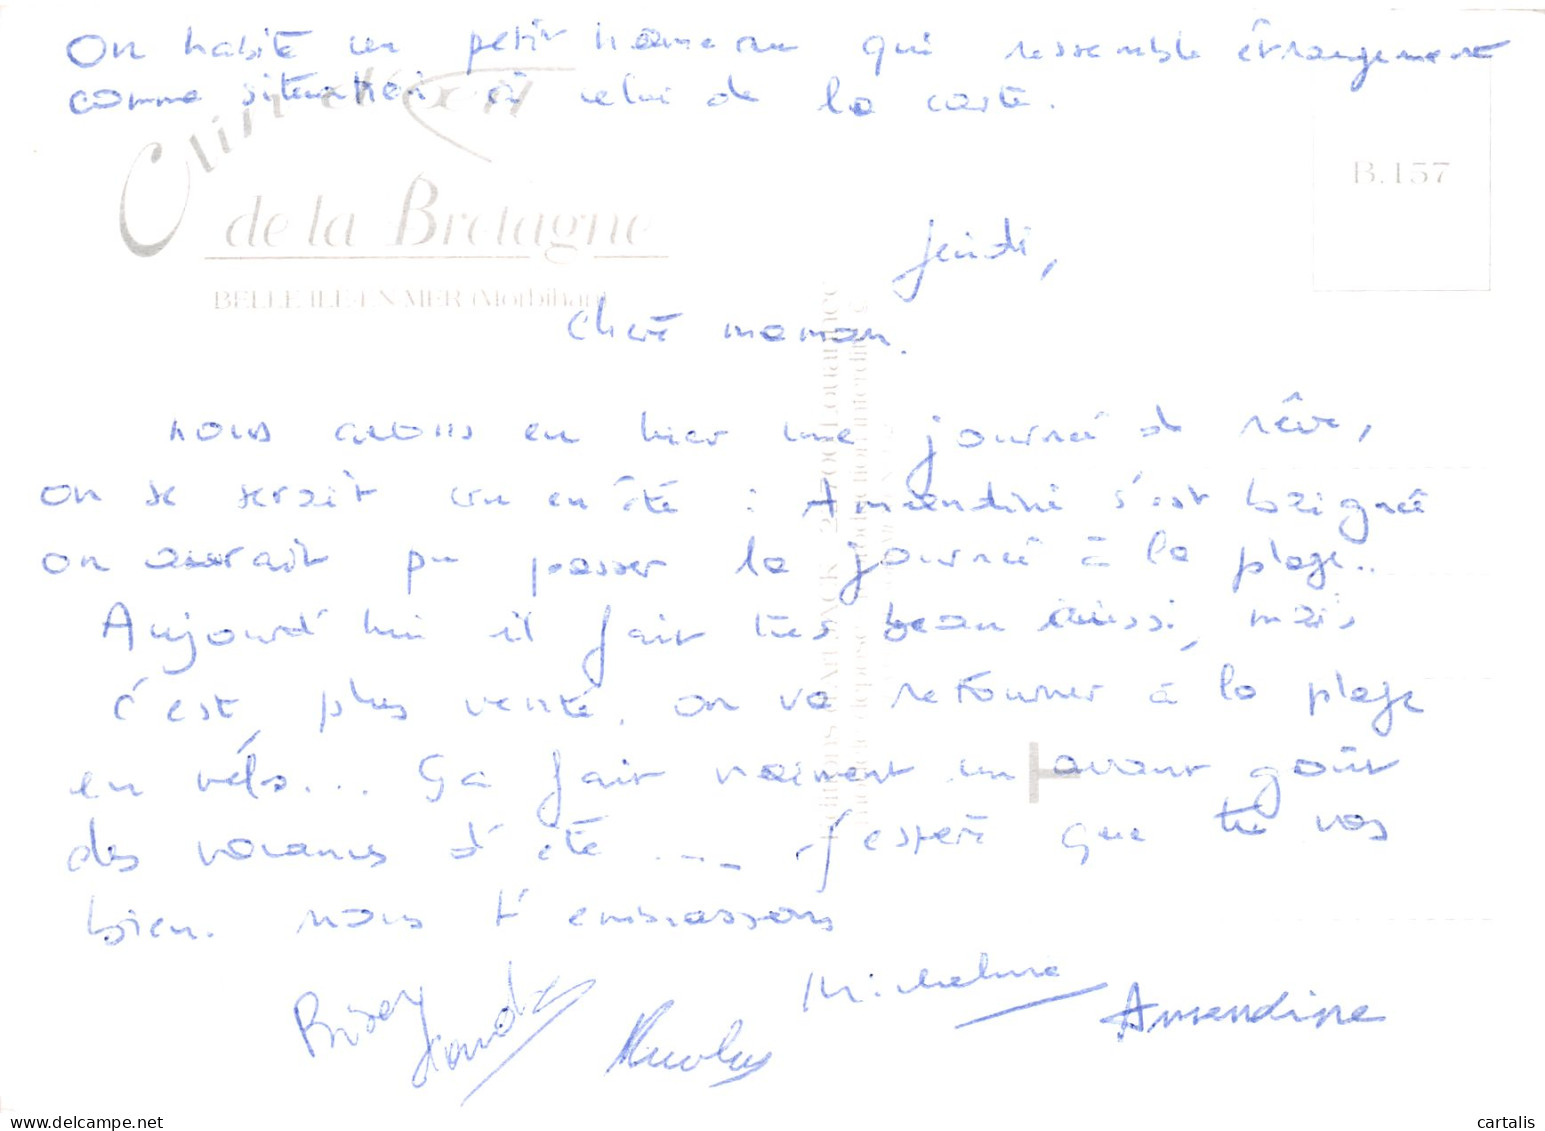 On habite un petit hameau qui ressemble étrangement
comme situation à celui de la carte.
Clin d'œil
de la Bretagne
BELLE-ILE-EN-MER (Morbihan)
B.157
Jeudi,
Chère maman.
nous avons eu hier une journée de rêve,
on se serait cru en été : Amandine s'est baignée
on aurait pu passer la journée à la plage..
Aujourd'hui il fait très beau aussi, mais
c'est plus venté. on va retourner à la plage
en vélo... ça fait vraiment un avant goût
des vacances d'été ... J'espère que tu vas
bien. nous t'embrassons
Micheline
Amandine
Nicolas
delcampe.net
cartalis